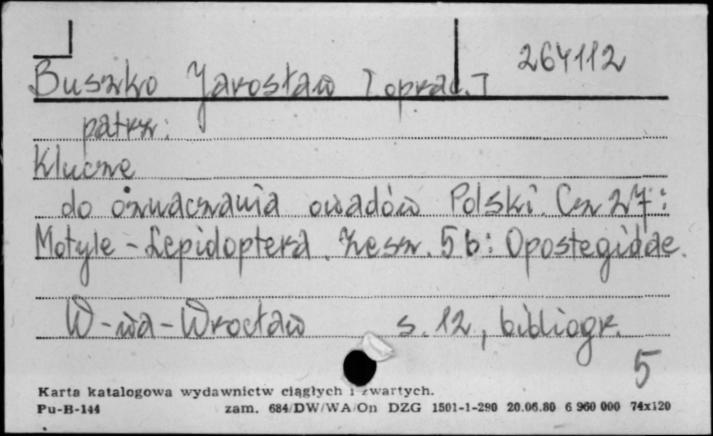 264112
Buszko Jarosław [oprac.]
patrz:
Klucze
do oznaczania owadów Polski. Cz 27:
Motyle - Lepidoptera. Zesz. 5b: Opostegidae.
W-wa-Wrocław s. 12, bibliogr.
5
Karta katalogowa wydawnictw ciągłych i zwartych.
Pu-B-144 zam. 684/DW/WA/On DZG 1501-1-290 20.06.80 6 960 000 74x120